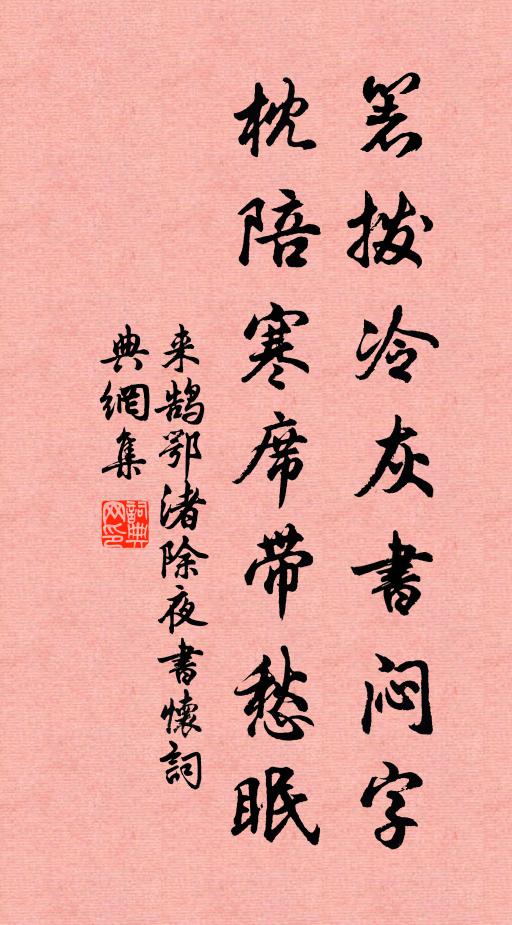 箸拨冷灰書闷字
枕陪寒席带愁眠
来鵠鄂渚除夜書懷詞
典網集
詞典
网印